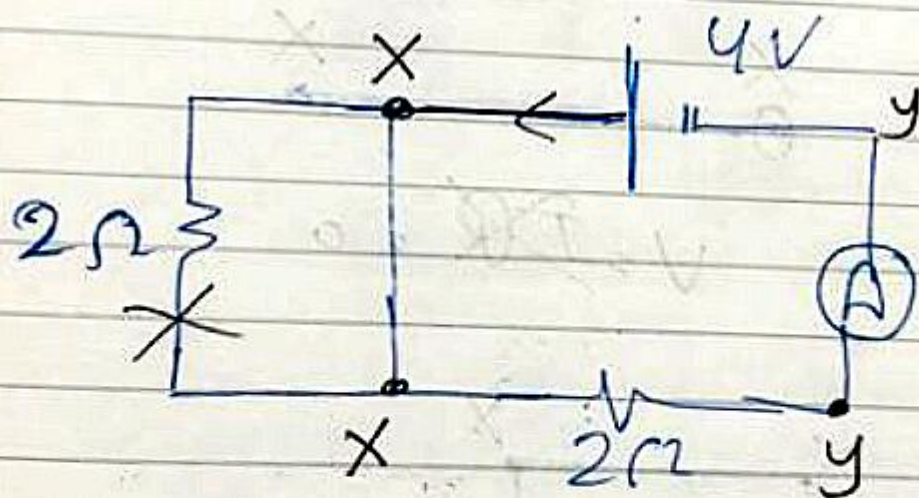 X
4V
y
2Ω
X
2Ω
y